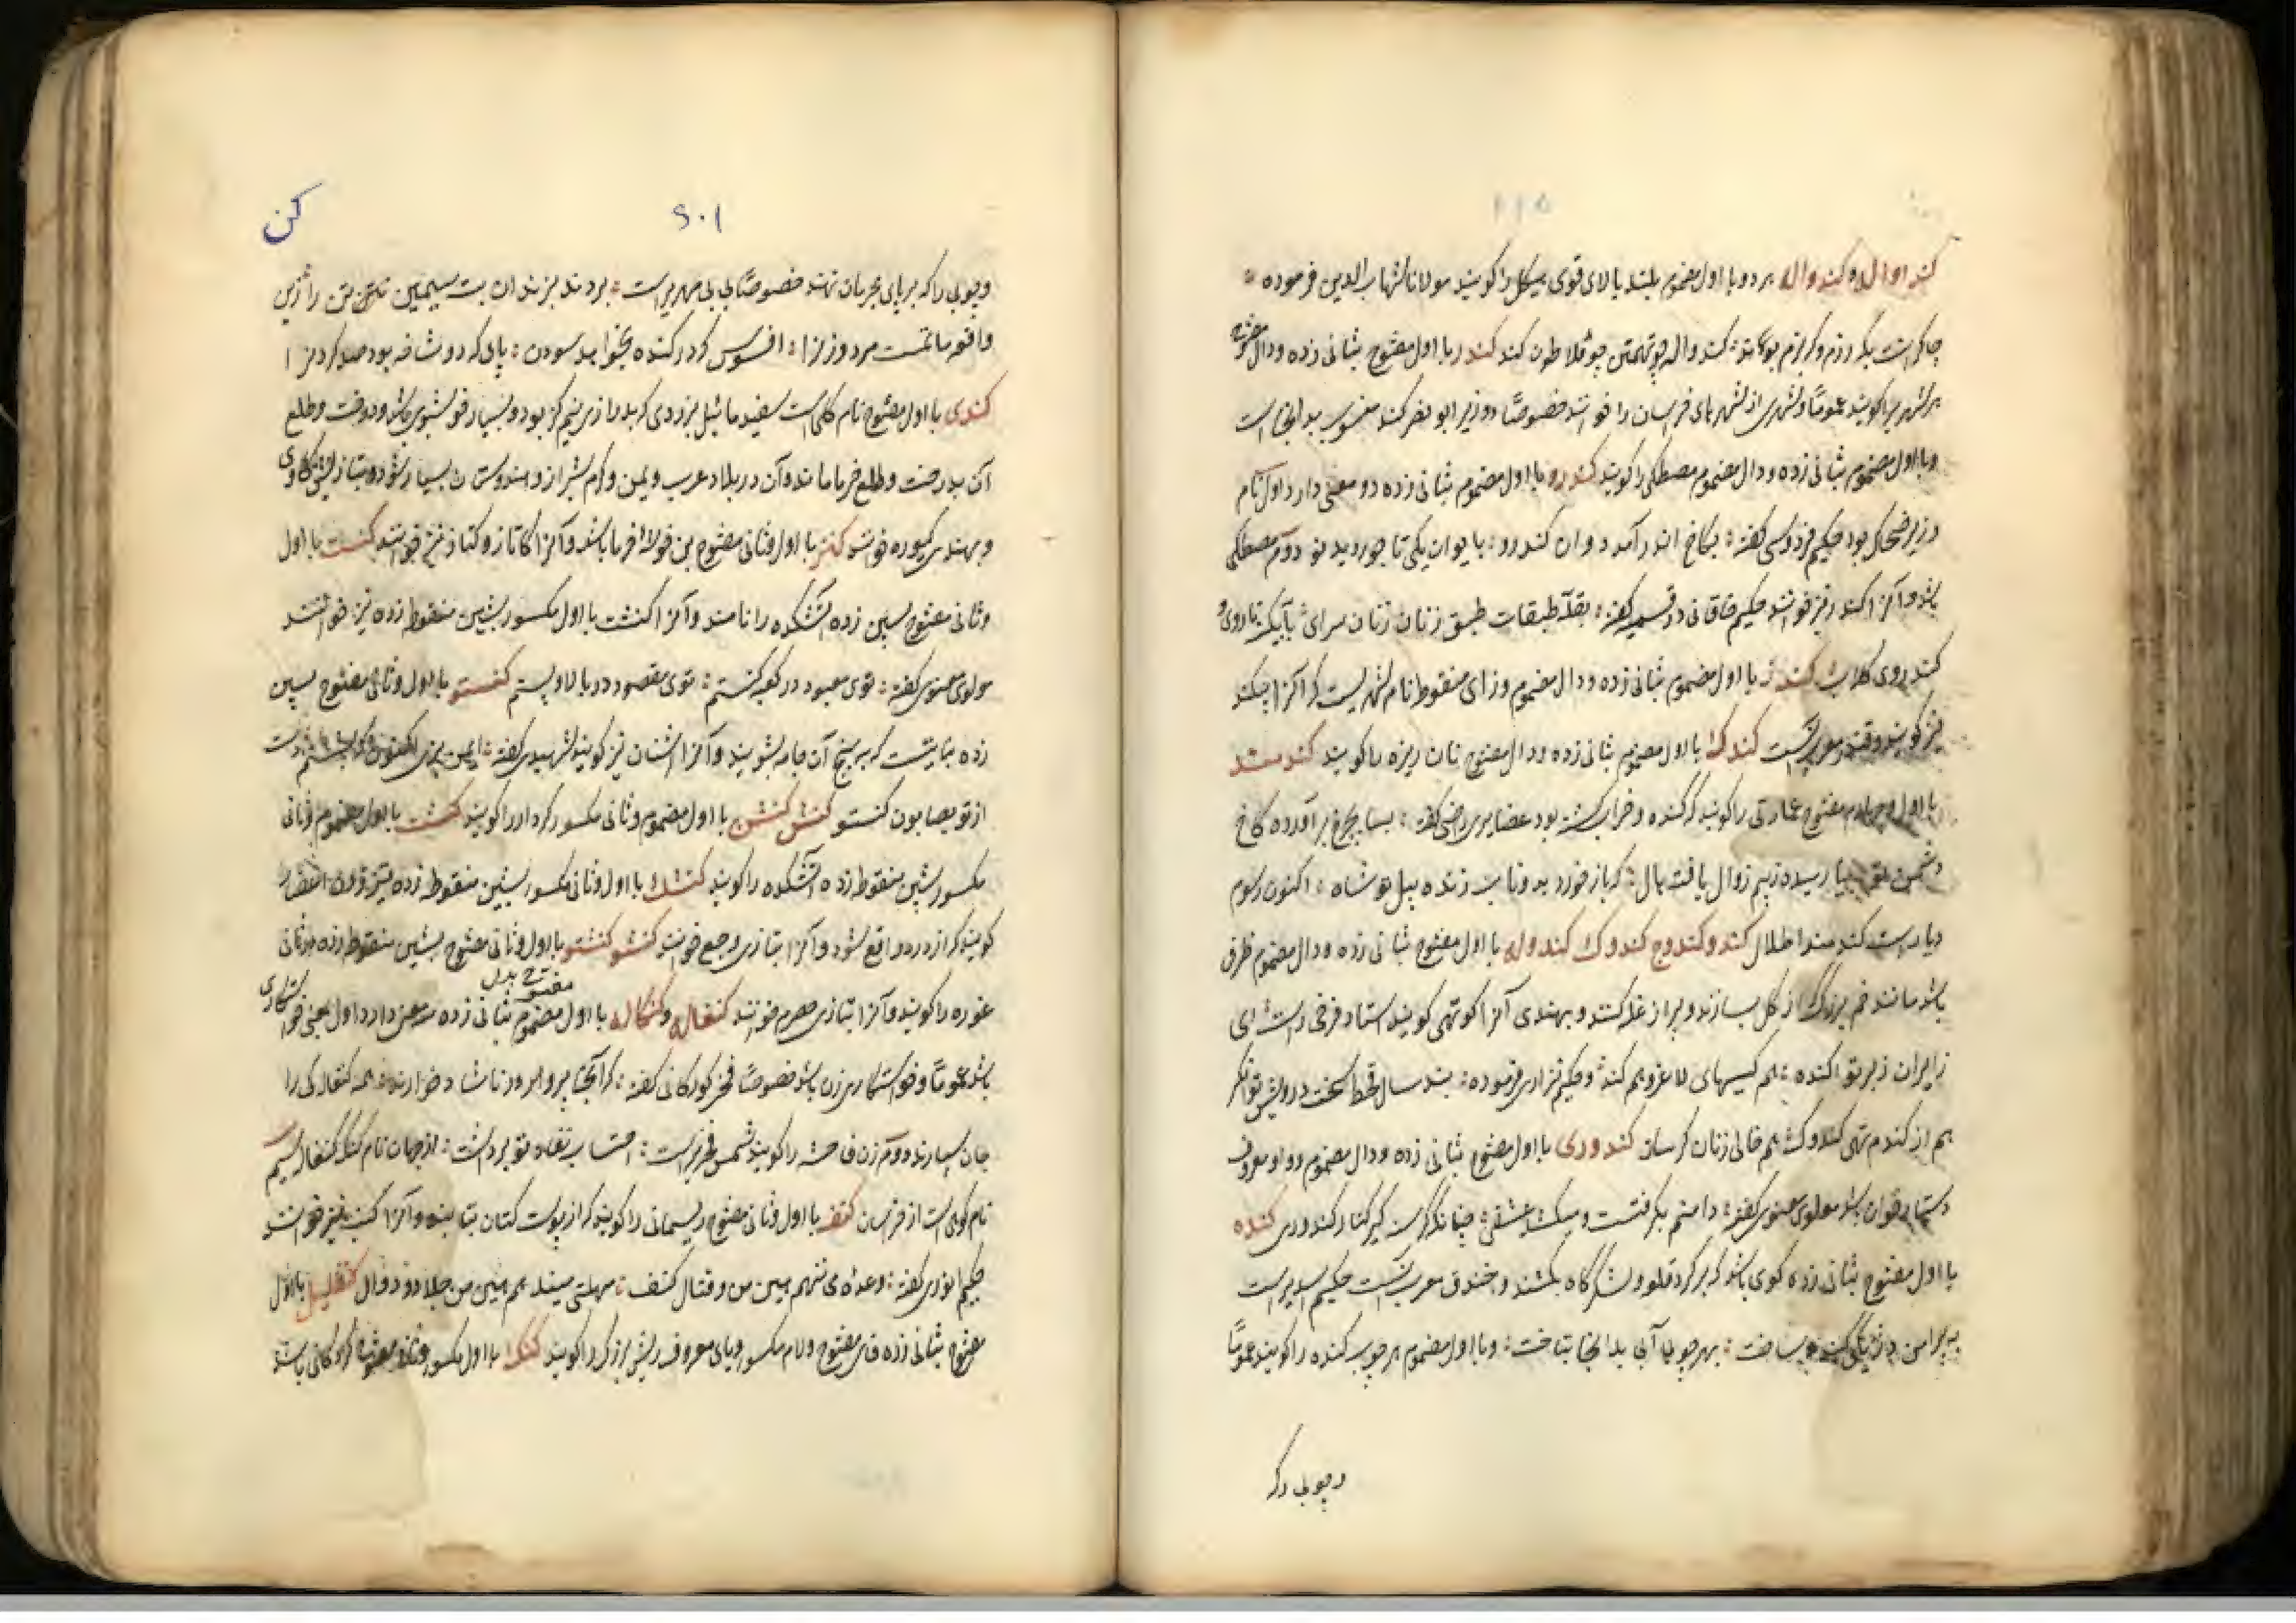 کند اواله و کند واله هر دو با اول مضموم بلند بالای قوی هیکل را کویند مولانا شهاب الدین فرموده
چاکرانت بکه رزم و که بزم بوند کند واله چو تهمتن چو فلاطون کند کندر با اول مفتوح بثانی زده و دال مفتوح
هر شهر را کویند عموماً و شهری از شهرهای خراسان را خوانند خصوصاً و وزیر ابو نصر کند منسوب بدانجا است
و با اول مضموم بثانی زده و دال مضموم مصطکی را کویند کندرو با اول مضموم بثانی زده دو معنی دارد اول نام
وزیر ضحاک بود حکیم فردوسی کفته بکاخ اندر آمد دوان کندرو بایوان یکی تاجور دید نو دوم مصطکی
باشد و آنرا کندر نیز خوانند حکیم خاقانی در قسمیه کفته طبقات طبق زنان زنان سرای
کندروی کلاب کندز با اول مضموم بثانی زده و دال مضموم و زای منقوط نام شهریست که آنرا بیکند
نیز کویند و قندز معرب آنست کندک با اول مضموم بثانی زده و دال مفتوح نان ریزه را کویند کندمند
با اول و چهارم مفتوح عمارتی را کویند که کنده و خراب شده بود عضایری رازی کفته بسا بچرخ برآورده کاخ
دشمن رسیده زیر زوال یافته بال که باز خورد بدو زنده پیل تو شاه اکنون رسوم
دیار است کندمند اطلال کند و کندوج کندوک کندوله با اول مفتوح بثانی زده و دال مضموم ظرفی
باشد مانند خم بزرک که از کل بسازند و پر از غله کنند و بهندی آنرا کوتهی کویند استاد فرخی راست ای
ز ایران زبر تو اکنده هم کیسهای لاغر و هم کندو حکیم نزاری فرموده بند سال قحط سخت درویش توانکر
هم از کندم تهی کندوکش هم خالی زنان کرسان کندوری با اول مفتوح بثانی زده و دال مضموم و واو معروف
دستار خوان باشد مولوی معنوی کفته دامنم بکرفتست و میکشد عشقی چنانکه کرسنه کیرد کنار کندوری کنده
با اول مفتوح بثانی زده کوی باشد که بر کرد قلعه و لشکرگاه بکنند و خندق معرب آنست حکیم اسدی راست
به پیرامن کنده بساخت بهر جوی آبی بدانجا بتاخت و با اول مضموم هر چوب کنده را کویند عموماً
و چوبی را که
۶۰۱
کن
و چوبی را که بر پای مجرمان نهند خصوصاً بی بی مهری راست بردند بزندان بت سیمین تن را زین
واقعه ماتمست مرد و زن را افسوس کرد کنده بخواهد سودن پایی که دو شاخه بود صد کردن را
کندی با اول مفتوح نام کلی است سفید مائیل بزردی که بدرازی نیم کز بود و بسیار خوشبوی باشد و درخت و طلع
آن بدرخت و طلع خرما ماند و آن در بلاد عرب و یمن و کرم شیراز و هندوستان بسیار شود و بتازیش کاوی
و بهندی کیوره خوانند کنز با اول و ثانی مفتوح بن خوشه خرما باشد و آنرا کاناز و کناز نیز خوانند کنست با اول
و ثانی مفتوح بسین زده آتشکده را نامند و آنرا کنشت با اول مکسور بشین منقوطه زده نیز خوانند
مولوی معنوی کفته توی معبود در کعبه کنستم توی مقصود در بالا و پستم کنستو با اول و ثانی مفتوح بسین
زده نباتیست که به بیخ آن جامه بشویند و آنرا اشنان نیز کویند شهیدی کفته
از تو بصابون کنستو کنش کنشن با اول مضموم و ثانی مکسور کردار را کویند کنشت با اول مضموم و ثانی
مکسور بشین منقوطه زده آتشکده را کویند کنشک با اول و ثانی مکسور بشین منقوطه زده
کویند که از درد واقع شود و آنرا بتازی وجع خوانند کنشو کنشتو با اول و ثانی مفتوح بشین منقوطه زده
غوره را کویند و آنرا بتازی حصرم خوانند کنغاله و کنگاله با اول مضموم بثانی زده سه معنی دارد اول بمعنی خواستکاری
مفتوح بدل
باشد عموماً و خواستکاری زن باشد خصوصاً فخر کورکانی کفته کرا ناشاد خوارند همه کنغالکی را
جان سپارند دوم زن فاحشه را کویند شمس فخری راست احتساب نفاذ تو برداشت از جهان نام کنک کنغاله سیم
نام کوهی است از خراسان کنف با اول و ثانی مفتوح ریسمانی را کویند که از پوست کتان بتابند و آنرا کنب نیز خوانند
حکیم انوری کفته وعده می ننهم همین من و قتال کنف مهلتی میند هم همین من جلاد و دوال کنفلیل با اول
مفتوح بثانی زده فای مفتوح و لام مکسور و یای معروف ریش بزرک را کویند کنک با اول مکسور